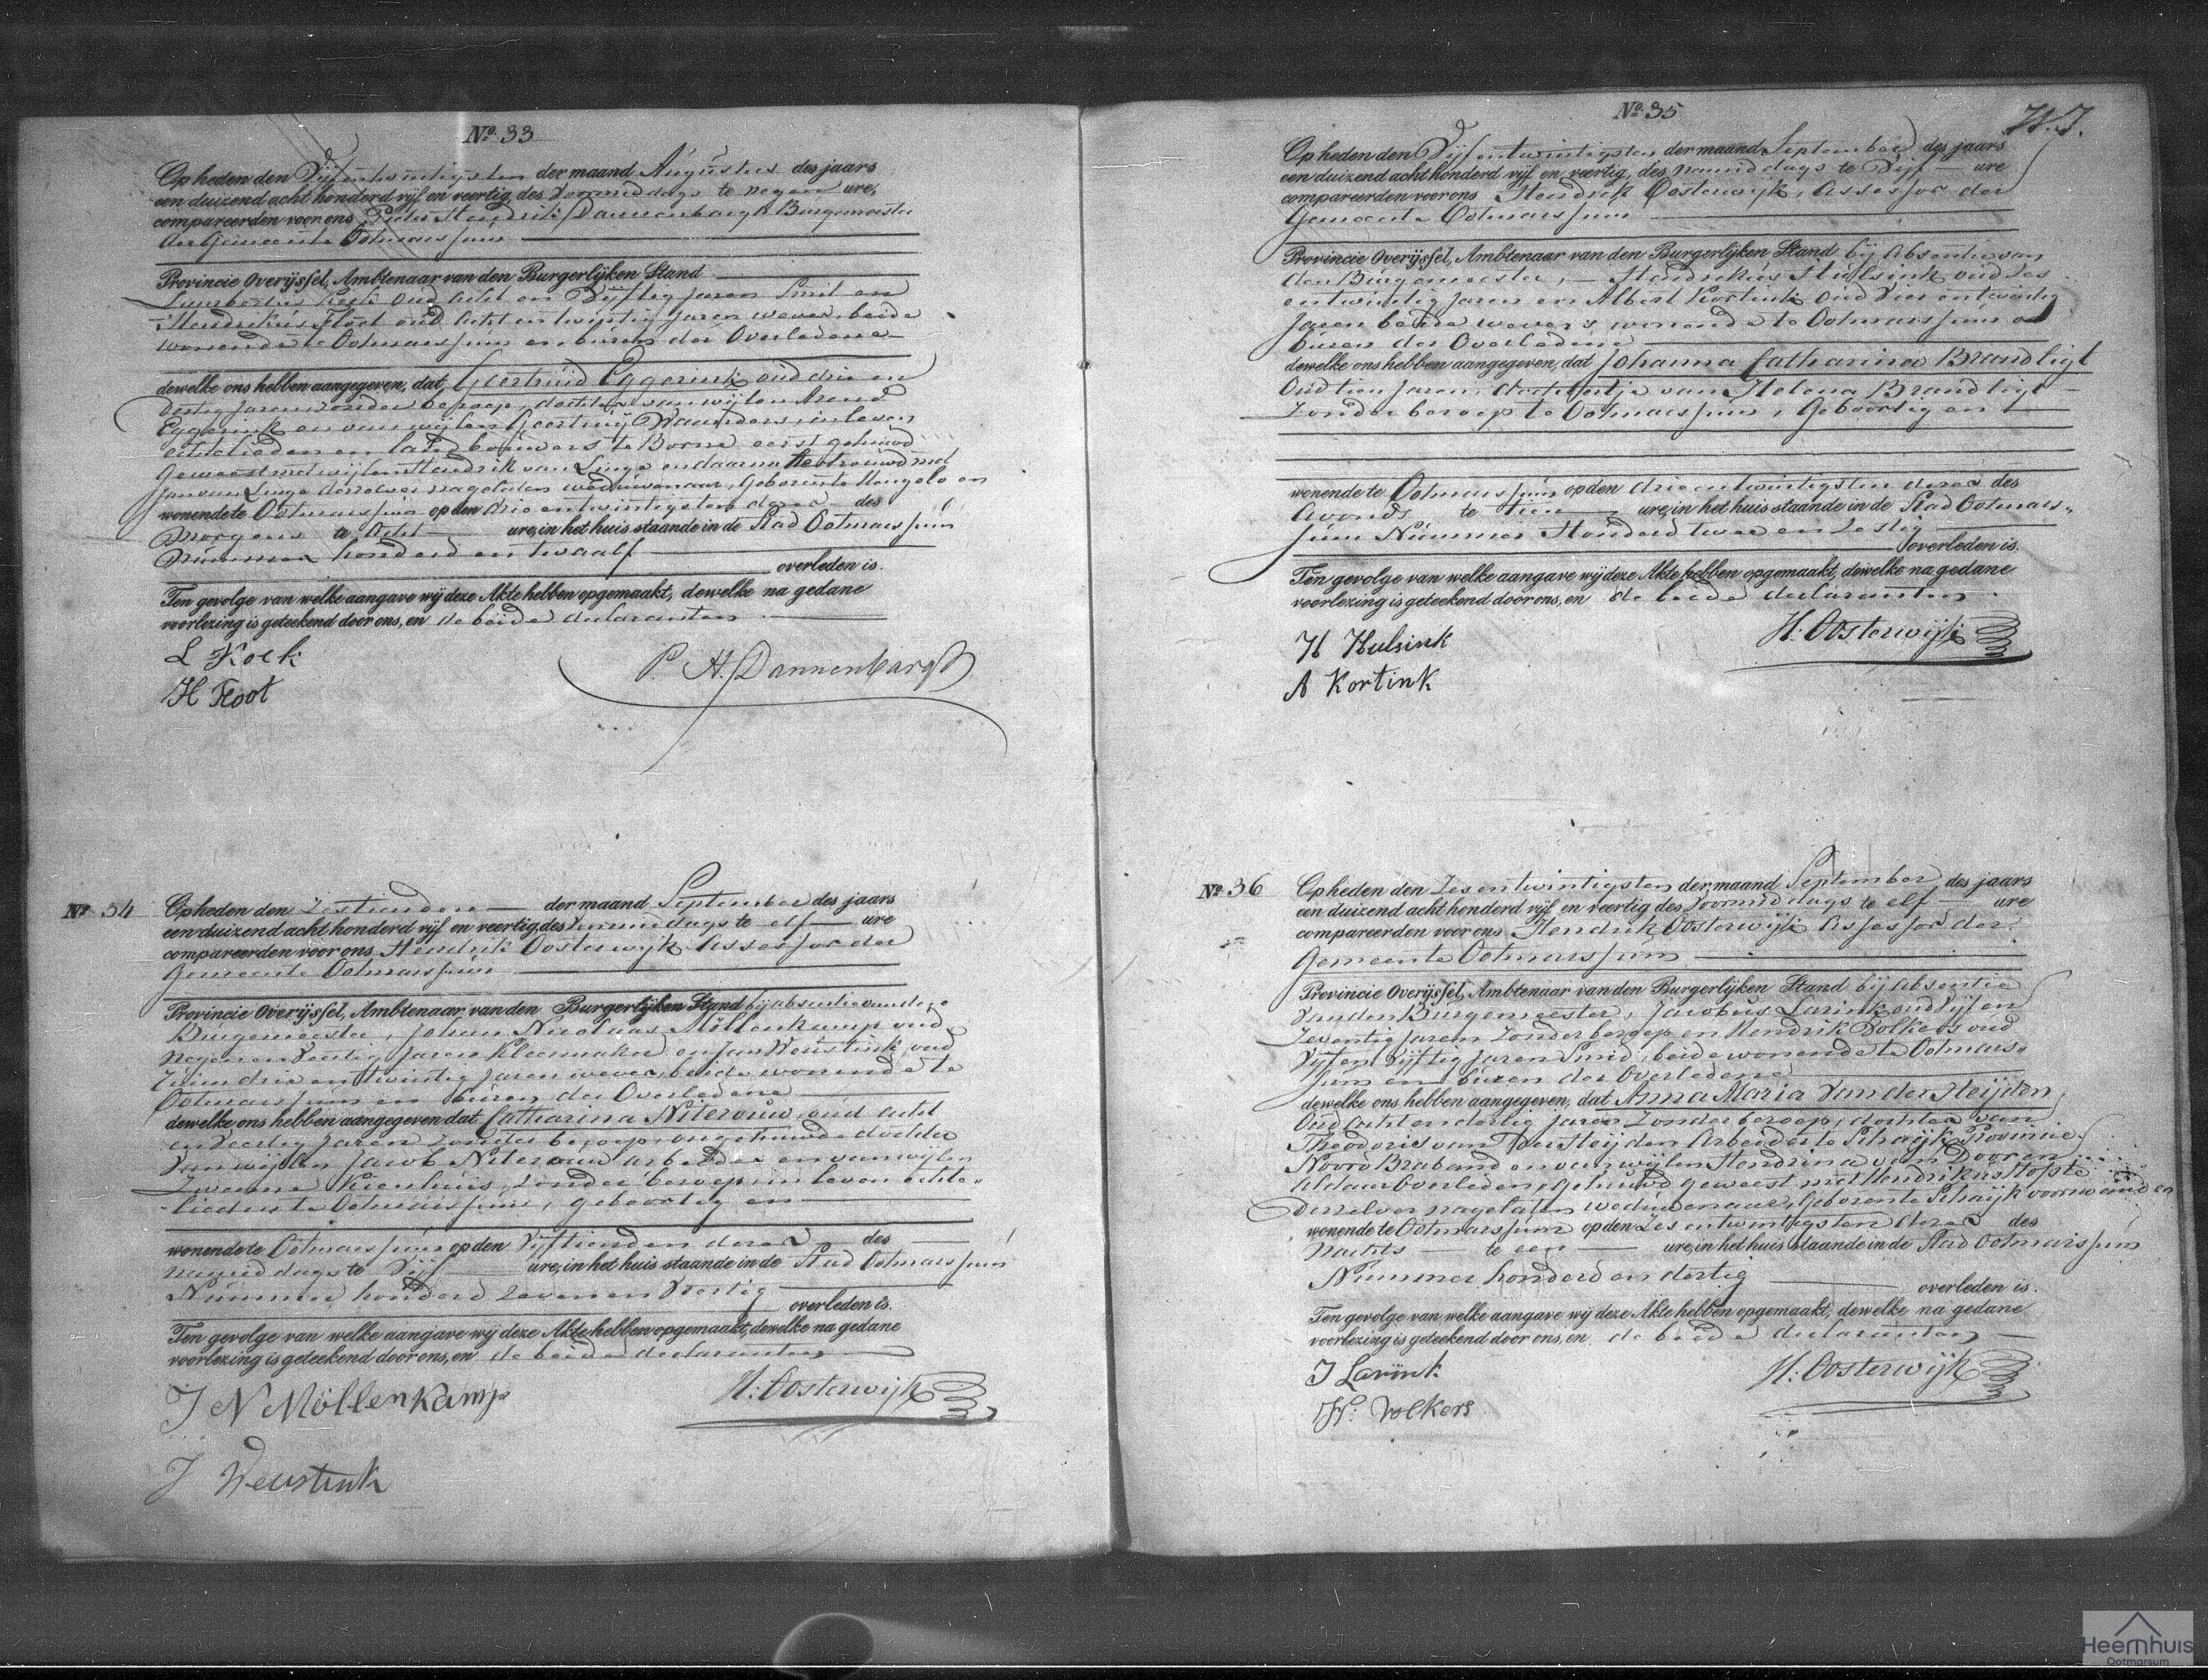 No. 33
Op heden den Vijfentwintigsten der maand Augustus des jaars
een duizend acht honderd vijf en veertig, des voormiddags te negen ure,
compareerden voor ons Pieter Hendrik Dannenbargh Burgemeester
der Gemeente Ootmarssum
Provincie Overijssel, Ambtenaar van den Burgerlijken Stand
Lambertus Kock oud acht en Vijftig jaren Smit en
Hendrikus Floot oud acht en twintig jaren wever, beide
wonende te Ootmarssum en buren der Overledene
dewelke ons hebben aangegeven, dat Geertruid Eggerink oud drie en
dertig jaren zonder beroep, dochter van wijlen Arend
Eggerink en van wijlen Geertruij Waanders in leven
echtelieden en landbouwers te Borne eerst gehuwd
geweest met wijlen Hendrik van Linge en daarna hertrouwd met
Jan van Linge derzelver nagelaten weduwenaar, Geboren te Hengelo en
wonende te Ootmarssum op den drieentwintigsten dezer des
morgens te acht ure, in het huis staande in de Stad Ootmarssum
Nummer honderd en twaalf
overleden is.
Ten gevolge van welke aangave wij deze Akte hebben opgemaakt, dewelke na gedane
voorlezing is geteekend door ons, en de beide declaranten
L Kock
H Floot
P. H. Dannenbargh
No. 34
Op heden den Zestienden der maand September des jaars
een duizend acht honderd vijf en veertig, des voormiddags te elf ure
compareerden voor ons Hendrik Oosterwijk Assessor der
Gemeente Ootmarssum
Provincie Overijssel, Ambtenaar van den Burgerlijken Stand bij absentie van den
Burgemeester, Johan Nicolaas Möllenkamp oud
Negen en Veertig jaren Kleermaker en Jan Weustink oud
drie en twintig jaren wever, beide wonende te
Ootmarssum en buren der Overledene
dewelke ons hebben aangegeven dat Catharina Niterouw, oud acht
en Veertig jaren zonder beroep, ongehuwde dochter
van wijlen Jacob Niterouw arbeider en van wijlen
Zwenne Kienhuis, zonder beroep in leven echte-
lieden te Ootmarssum, geboortig en
wonende te Ootmarssum op den Vijftienden dezer des
namiddags te Vijf ure, in het huis staande in de Stad Ootmarssum
Nummer honderd zeven en Veertig
overleden is.
Ten gevolge van welke aangave wij deze Akte hebben opgemaakt, dewelke na gedane
voorlezing is geteekend door ons, en de beide declaranten
J N Möllenkamp
H: Oosterwijk
J Weustink
No. 35
Op heden den Vijfentwintigsten der maand September des jaars
een duizend acht honderd vijf en veertig, des namiddags te Vijf ure
compareerden voor ons Hendrik Oosterwijk, Assessor der
Gemeente Ootmarssum
Provincie Overijssel, Ambtenaar van den Burgerlijken Stand bij Absentie van
den Burgemeester, Hendrikus Hulsink oud zes
entwintig jaren en Albert Kortink oud Vier entwintig
jaren beide wevers, wonende te Ootmarssum en
buren der Overledene
dewelke ons hebben aangegeven, dat Johanna Catharina Brandligt
Oud tien jaren, dochtertje van Helena Brandligt
zonder beroep te Ootmarssum, Geboortig en
wonende te Ootmarssum op den drieentwintigsten dezer des
Avonds te tien ure, in het huis staande in de Stad Ootmars-
sum Nummer Honderd twee en zestig
overleden is.
Ten gevolge van welke aangave wij deze Akte hebben opgemaakt, dewelke na gedane
voorlezing is geteekend door ons, en de beide declaranten
H Hulsink
H: Oosterwijk
A Kortink
No. 36
Op heden den Zesentwintigsten der maand September des jaars
een duizend acht honderd vijf en veertig des Voormiddags te elf ure
compareerden voor ons Hendrik Oosterwijk Assessor der
Gemeente Ootmarssum
Provincie Overijssel, Ambtenaar van den Burgerlijken Stand bij Absentie
van den Burgemeester, Jacobus Larink oud Vijf en
Zeventig jaren Zonder beroep en Hendrik Volkers oud
Vijf en Vijftig jaren Smid, beide wonende te Ootmars-
sum en buren der Overledene
dewelke ons hebben aangegeven, dat Anna Maria van der Heijden,
Oud acht en dertig jaren zonder beroep, dochter van
Theodorus van der Heijden Arbeider te Schaijk Provincie
Noord Braband en van wijlen Hendrina van Dooren
aldaar Overleden, Gehuwd geweest met Hendrikus Hofste
derzelver nagelaten weduwenaar, Geboren te Schaijk voornoemd en
wonende te Ootmarssum op den Zesentwintigsten dezer des
Nachts te een ure, in het huis staande in de Stad Ootmarssum
Nummer honderd en dertig
overleden is.
Ten gevolge van welke aangave wij deze Akte hebben opgemaakt, dewelke na gedane
voorlezing is geteekend door ons, en de beide declaranten
J Larink
H: Oosterwijk
H: Volkers
Heemhuis
Ootmarsum